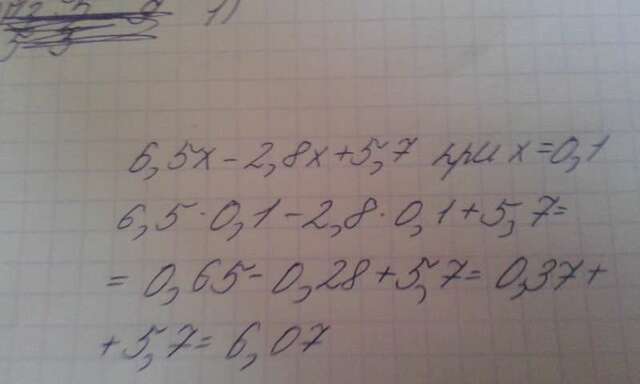 1)
6,5х - 2,8х + 5,7 при х = 0,1
6,5 · 0,1 - 2,8 · 0,1 + 5,7 =
= 0,65 - 0,28 + 5,7 = 0,37 +
+ 5,7 = 6,07